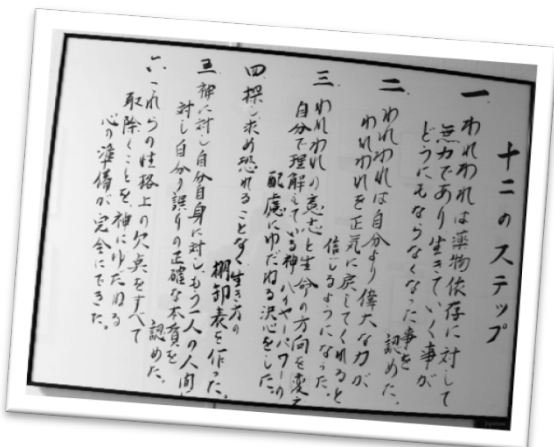 十二のステップ
一 われわれは薬物依存に対して
無力であり生きていく事が
どうにもならなくなった事を
認めた。
二 われわれは自分より偉大な力が
われわれを正気に戻してくれると
信じるようになった。
三 われわれの意志と生命の方向を変え
自分で理解している神、ハイヤーパワーの
配慮にゆだねる決心をした。
四 探し求め恐れることなく生き方の
棚卸表を作った。
五 神に対し自分自身に対しもう一人の人間に
対し自分の誤りの正確な本質を
認めた。
六 これらの性格上の欠点をすべて
取除くことを、神にゆだねる
心の準備が完全にできた。